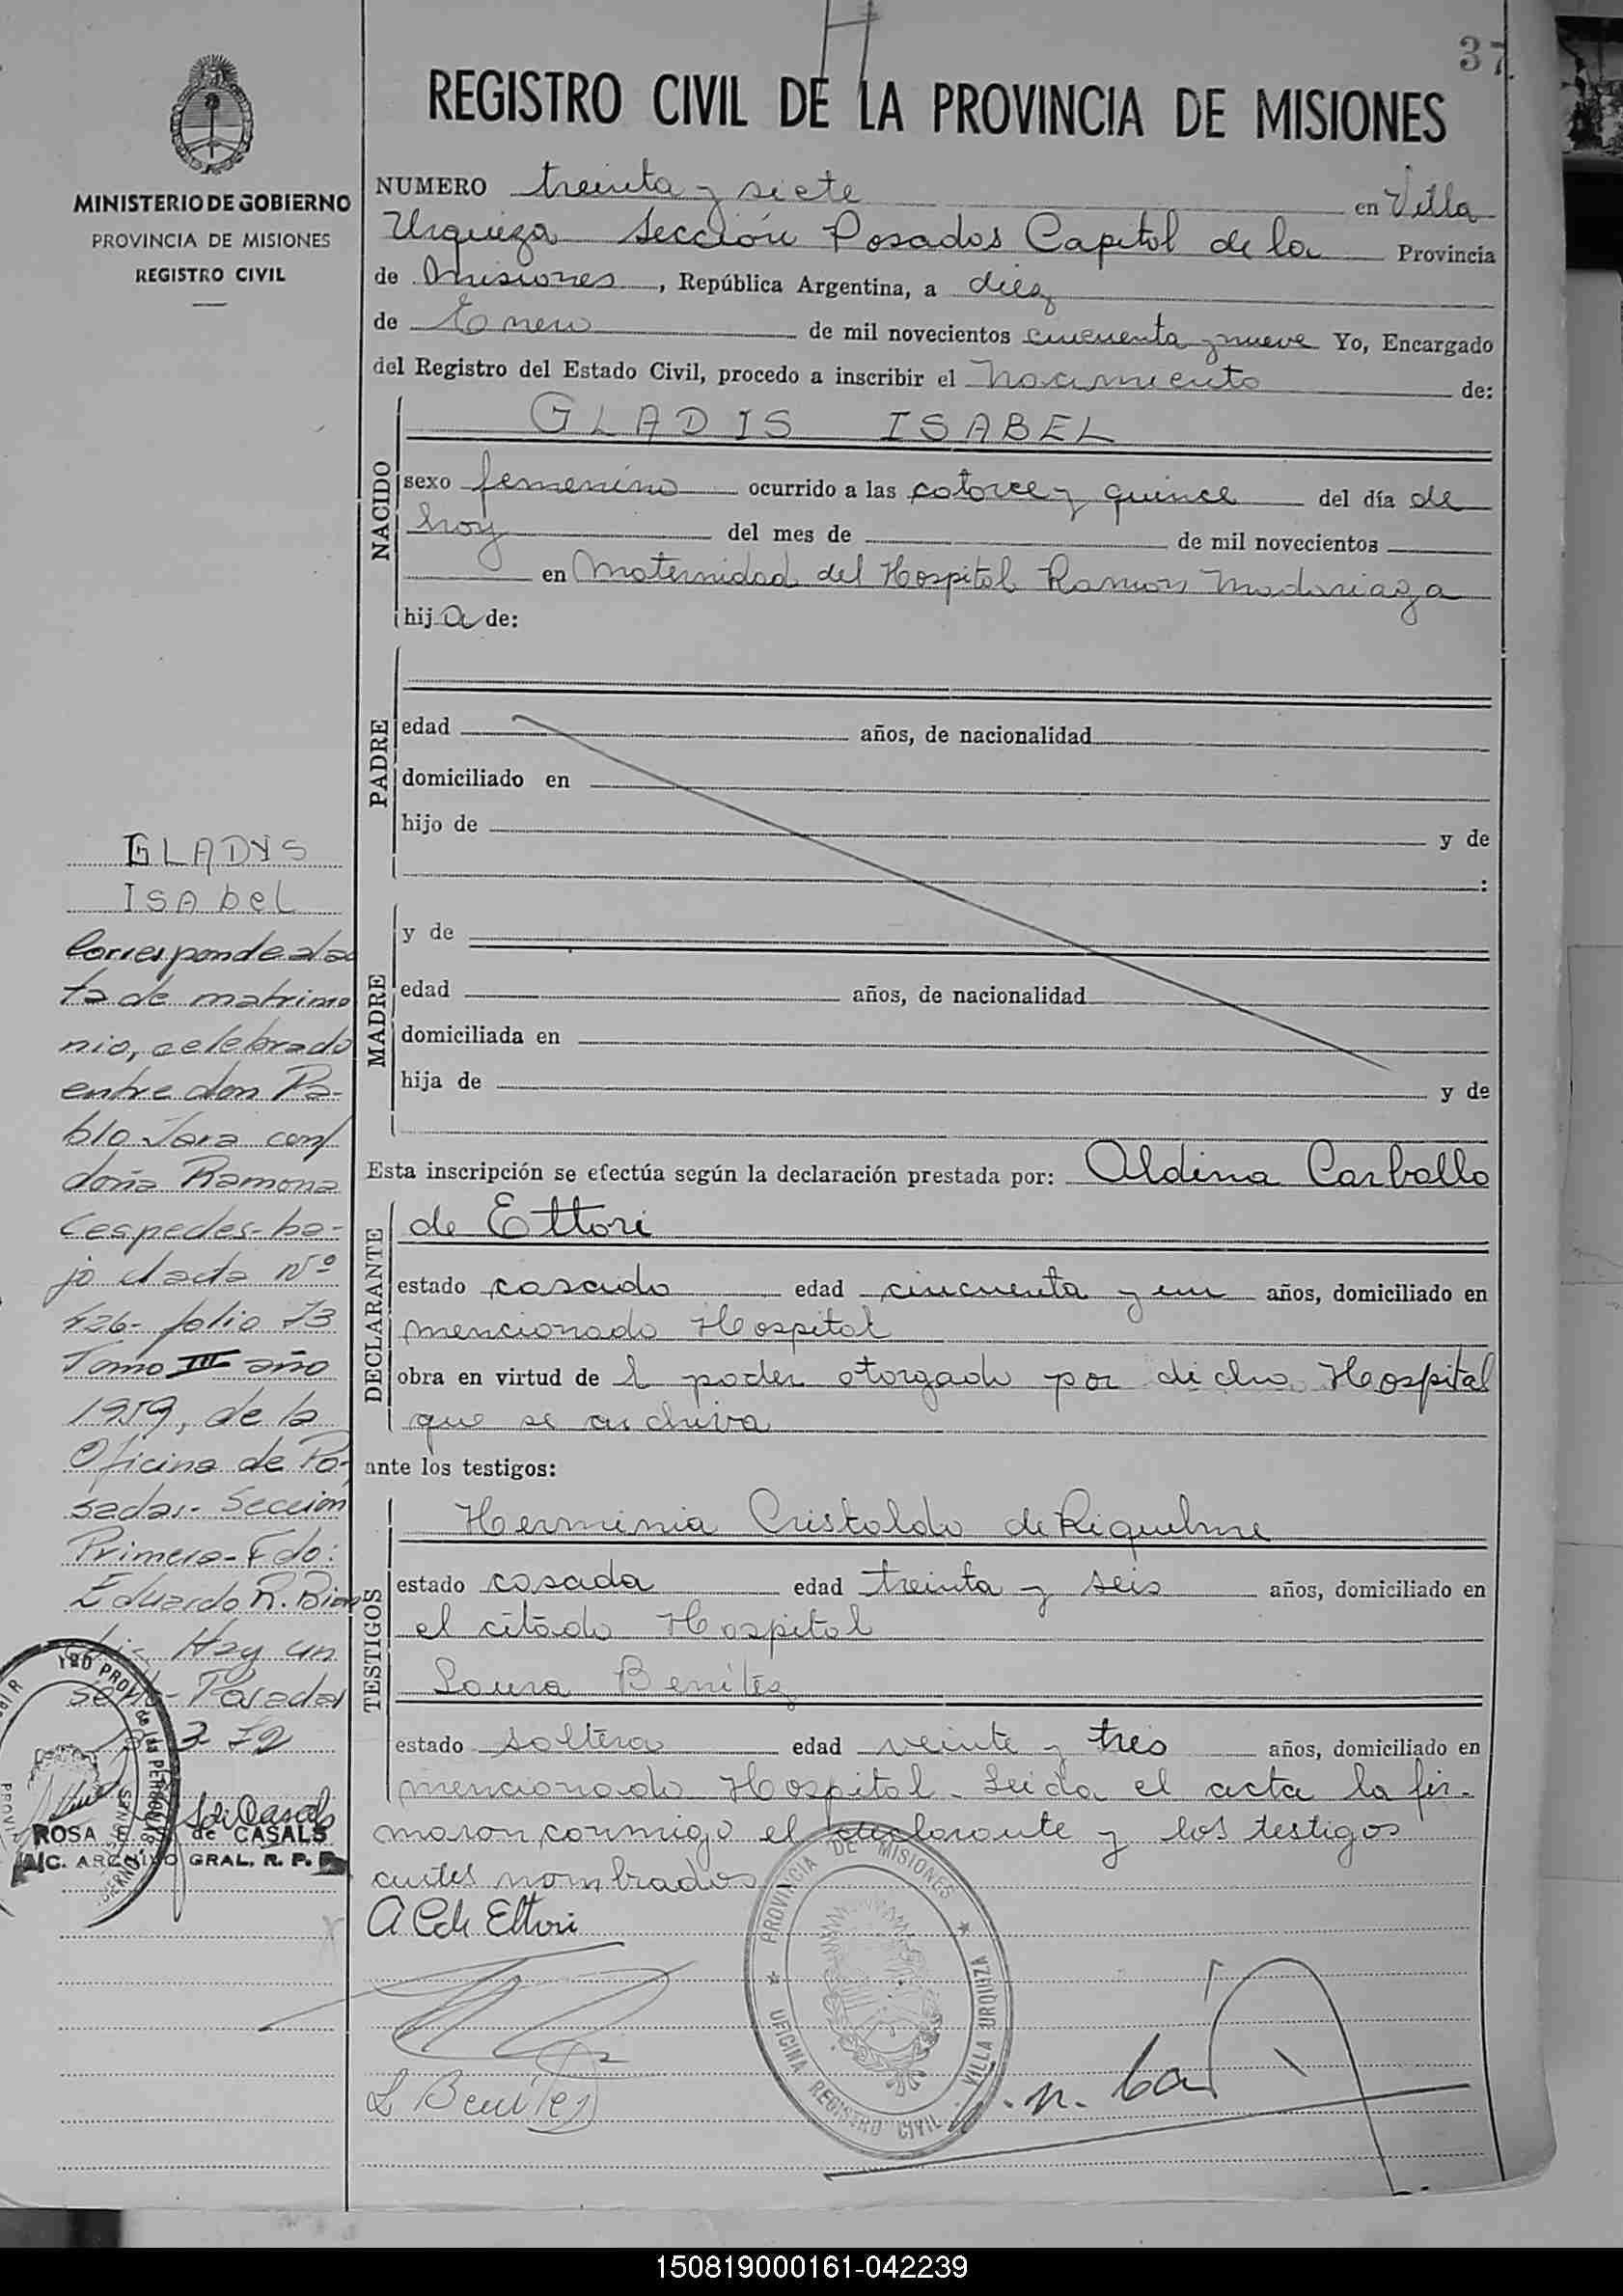 37
REGISTRO CIVIL DE LA PROVINCIA DE MISIONES
MINISTERIO DE GOBIERNO
PROVINCIA DE MISIONES
REGISTRO CIVIL
NUMERO treinta y siete en Villa
Urquiza Sección Posadas Capital de la Provincia
de Misiones, República Argentina, a diez
de Enero de mil novecientos cincuenta y nueve Yo, Encargado
del Registro del Estado Civil, procedo a inscribir el Nacimiento de:
NACIDO
GLADIS ISABEL
sexo femenino ocurrido a las catorce y quince del día de
hoy del mes de de mil novecientos
en Maternidad del Hospital Ramon Madariaga
hija de:
PADRE
edad años, de nacionalidad
domiciliado en
hijo de y de
:
MADRE
y de
edad años, de nacionalidad
domiciliada en
hija de y de
Esta inscripción se efectúa según la declaración prestada por: Aldina Carballo
DECLARANTE
de Ettori
estado casado edad cincuenta y un años, domiciliado en
mencionado Hospital
obra en virtud de l poder otorgado por dicho Hospital
que se archiva
ante los testigos:
TESTIGOS
Herminia Cristaldo de Riquelme
estado casada edad treinta y seis años, domiciliado en
el citado Hospital
Laura Benitez
estado soltera edad veinte y tres años, domiciliado en
mencionado Hospital. Leida el acta la fir-
maron conmigo el declarante y los testigos
antes nombrados
A C de Ettori
L Benitez
PROVINCIA DE MISIONES
OFICINA REGISTRO CIVIL
VILLA URQUIZA
GLADYS
ISAbeL
Corresponde al ac
ta de matrimo
nio, celebrado
entre don Pa-
blo Jara con
doña Ramona
Cespedes- ba-
jo el acta Nº
426- folio 73
Tomo III año
1959, de la
Oficina de Po-
sadas- Sección
Primera- Fdo:
Eduardo R.
Hay un
sello- Posadas
3-72
ROSA de CASALS
A/C. ARCHIVO GRAL. R. P.
150819000161-042239